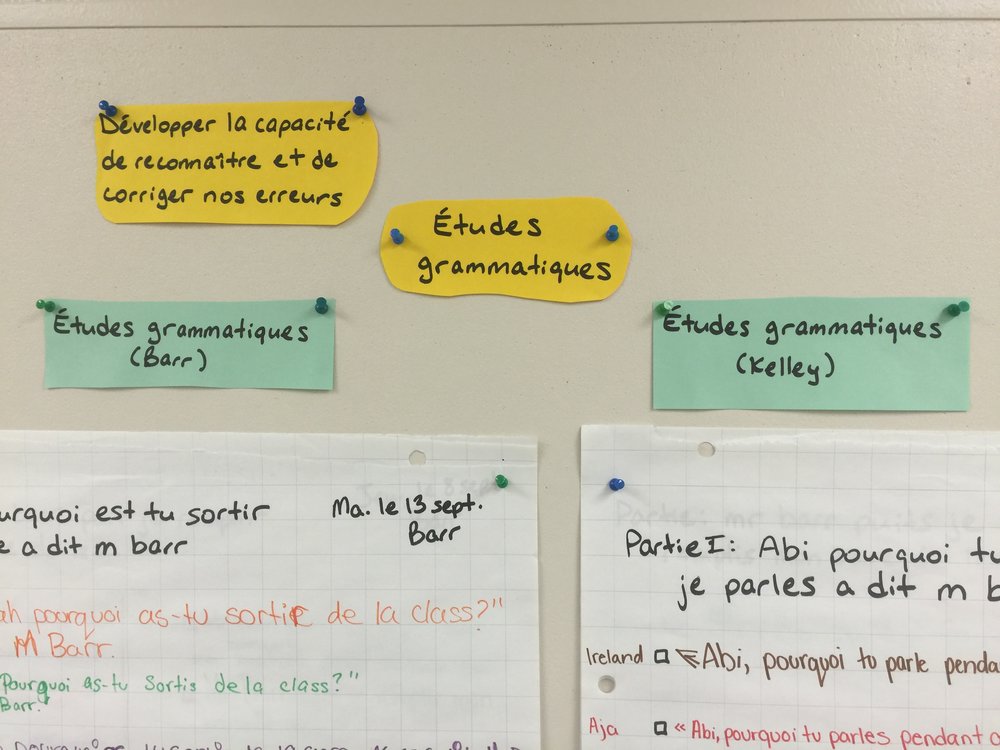 Développer la capacité
de reconnaître et de
corriger nos erreurs
Études
grammatiques
Études grammatiques
(Barr)
Études grammatiques
(Kelley)
urquoi est tu sortir
e a dit m barr
Ma. le 13 sept.
Barr
ah pourquoi as-tu sortir de la class?"
M Barr.
Pourquoi as-tu Sortis de la class?"
Barr.
Partie I: Abi pourquoi tu
je parles a dit m b
Ireland Abi, pourquoi tu parle penda
Aja « Abi, pourquoi tu parles pendant